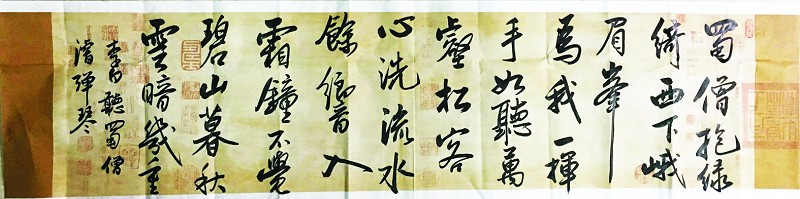 蜀僧抱綠
綺西下峨
眉峯
為我一揮
手如聽萬
壑松客
心洗流水
餘響入
霜鐘不覺
碧山暮秋
雲暗幾重
李白聽蜀僧
濬彈琴